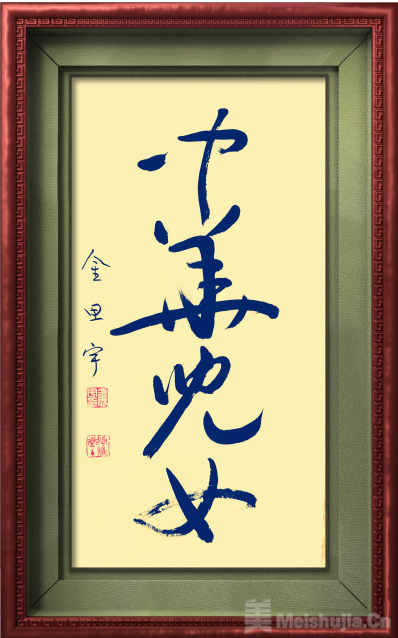 中华儿女
金思宇
美 Meishujia.Cn